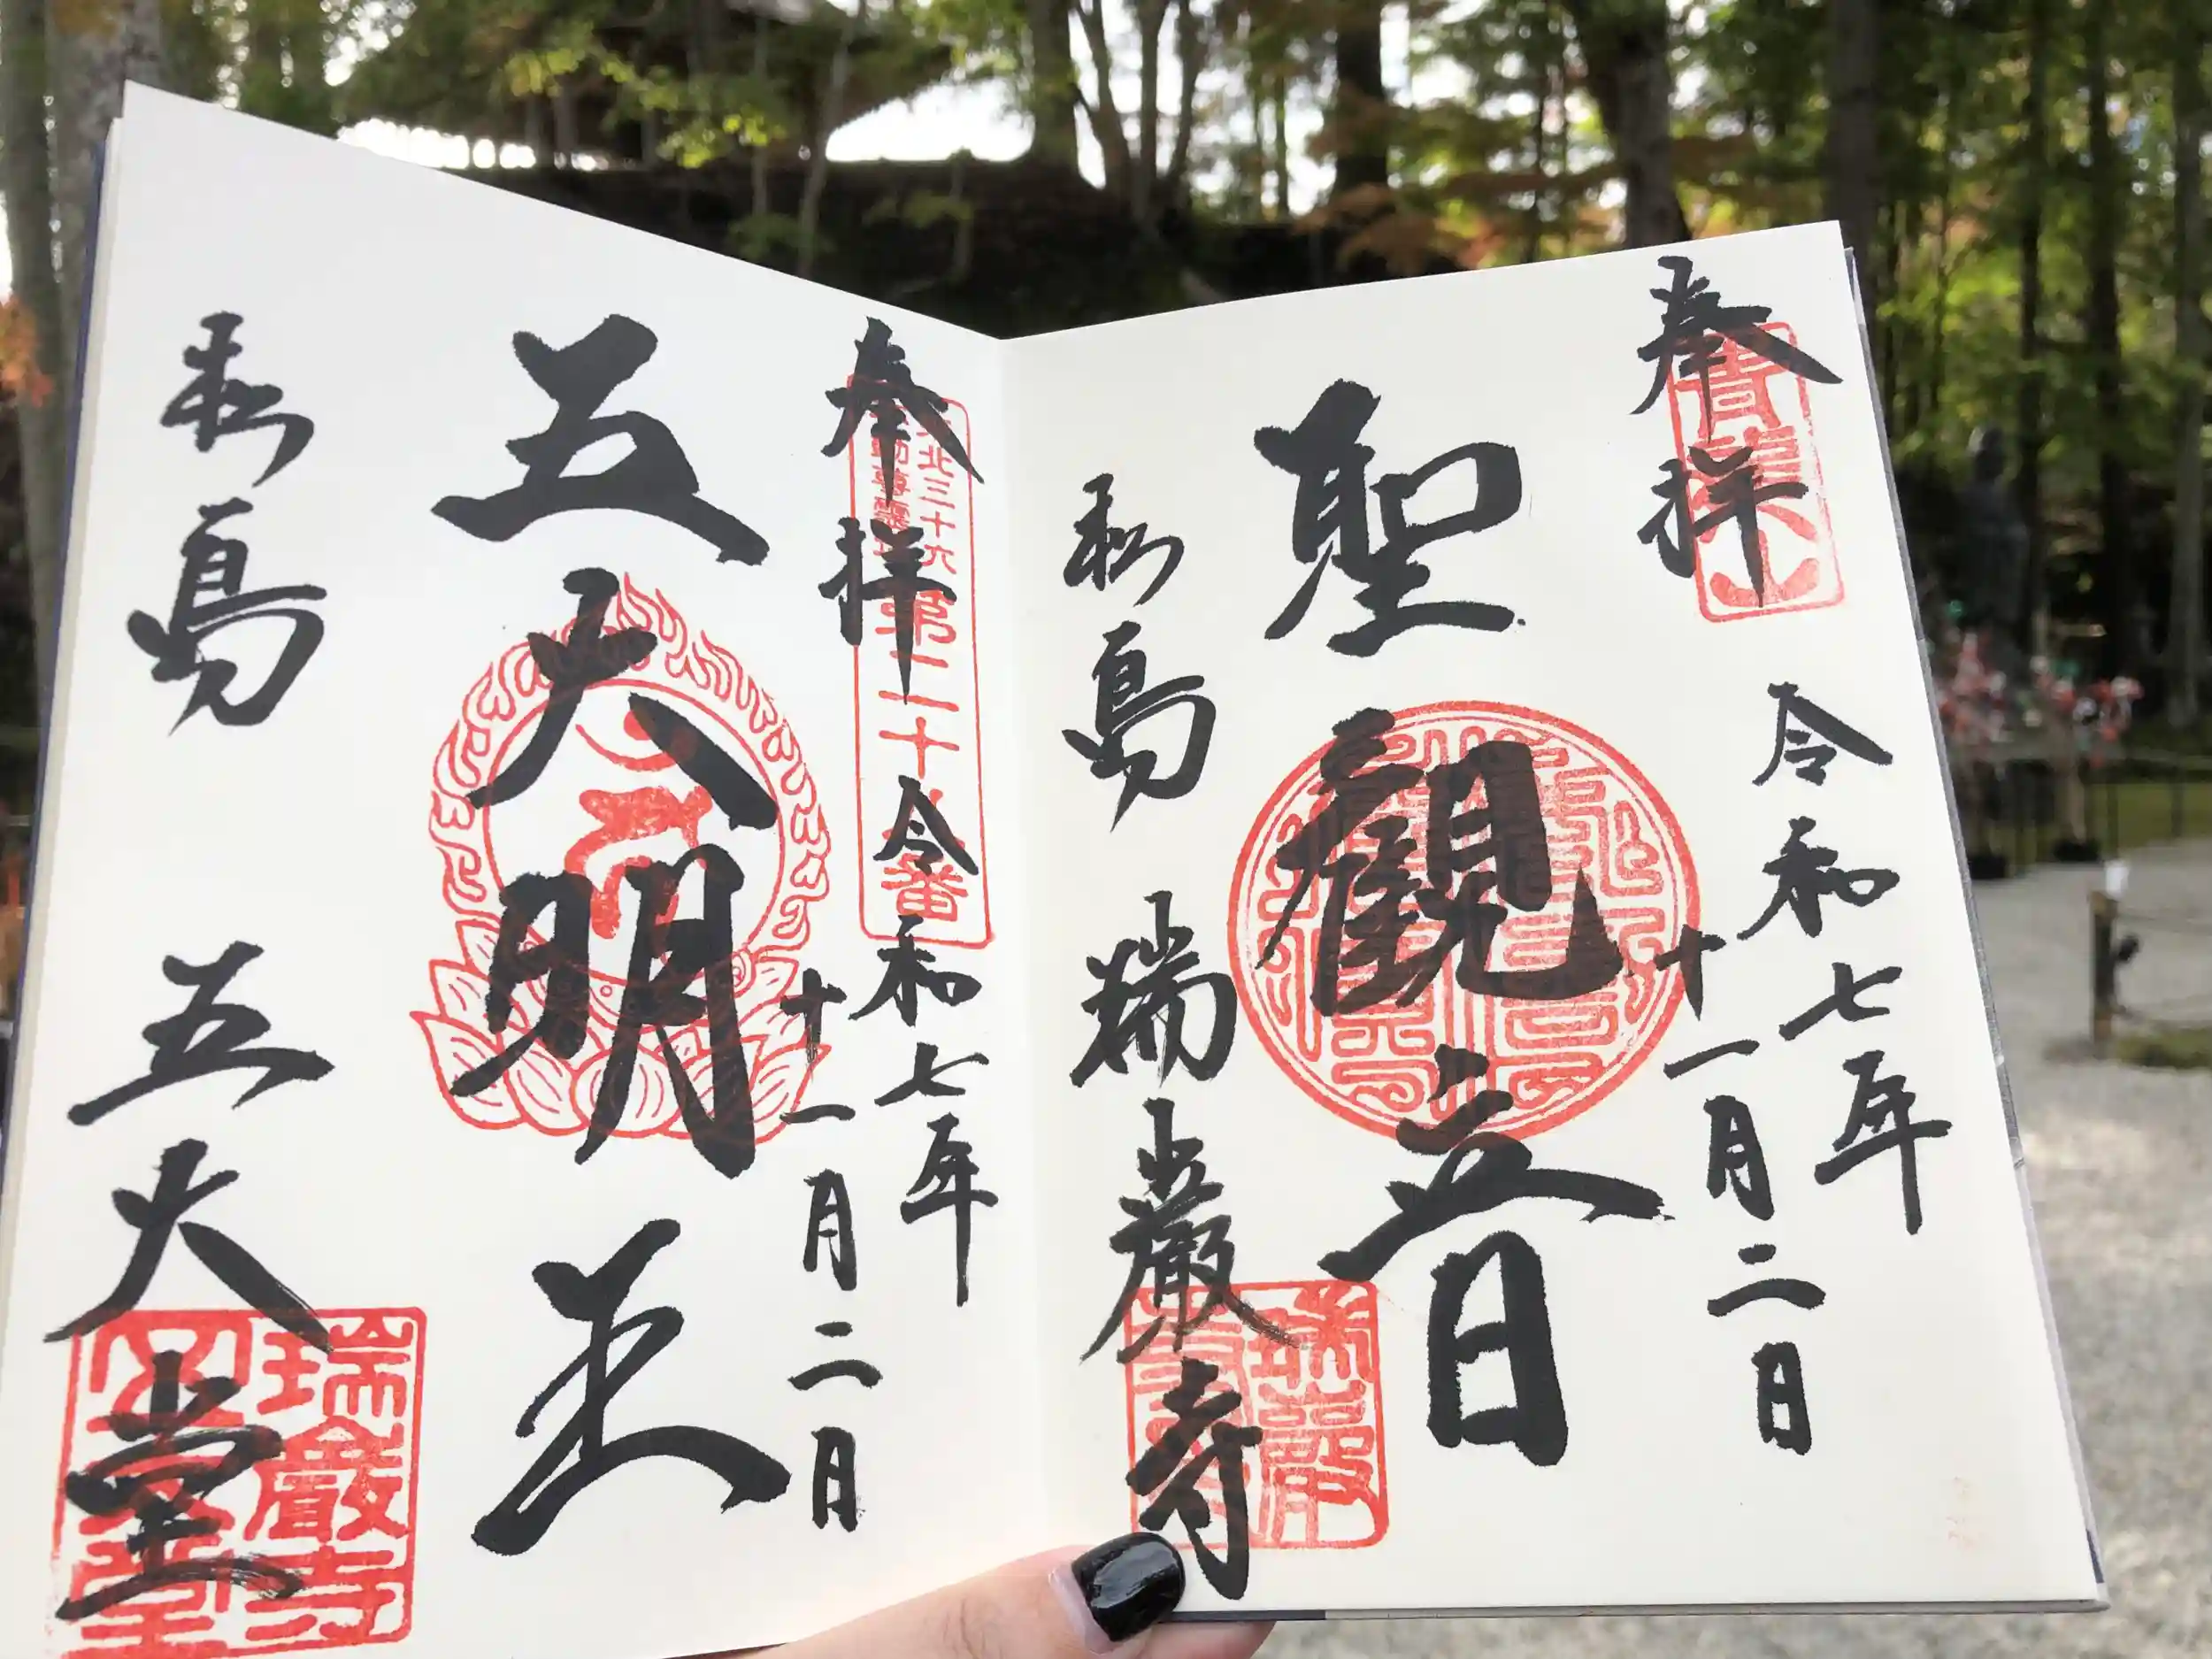 奉拝
令和七年
十一月二日
聖観音
松島 瑞巌寺
瑞巌
奉拝
第二十六番
令和七年
十一月二日
五大明王
松島 五大堂
瑞巌寺
五大堂